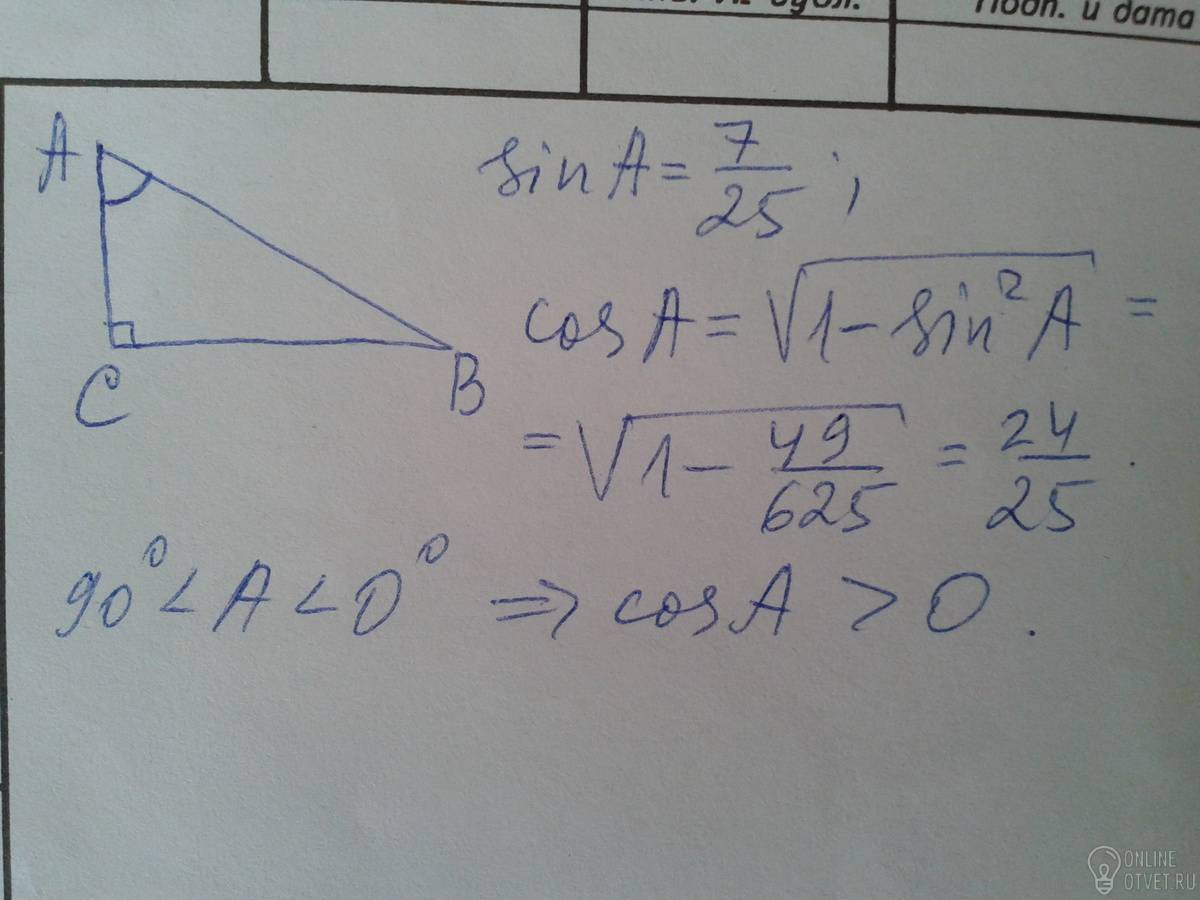 Подп. и дата
A
C
B
sin A = 7/25 ;
cos A = √(1 - sin² A) =
= √(1 - 49/625) = 24/25 .
90° < A < 0° ⇒ cos A > 0 .
ONLINE
OTVET.RU